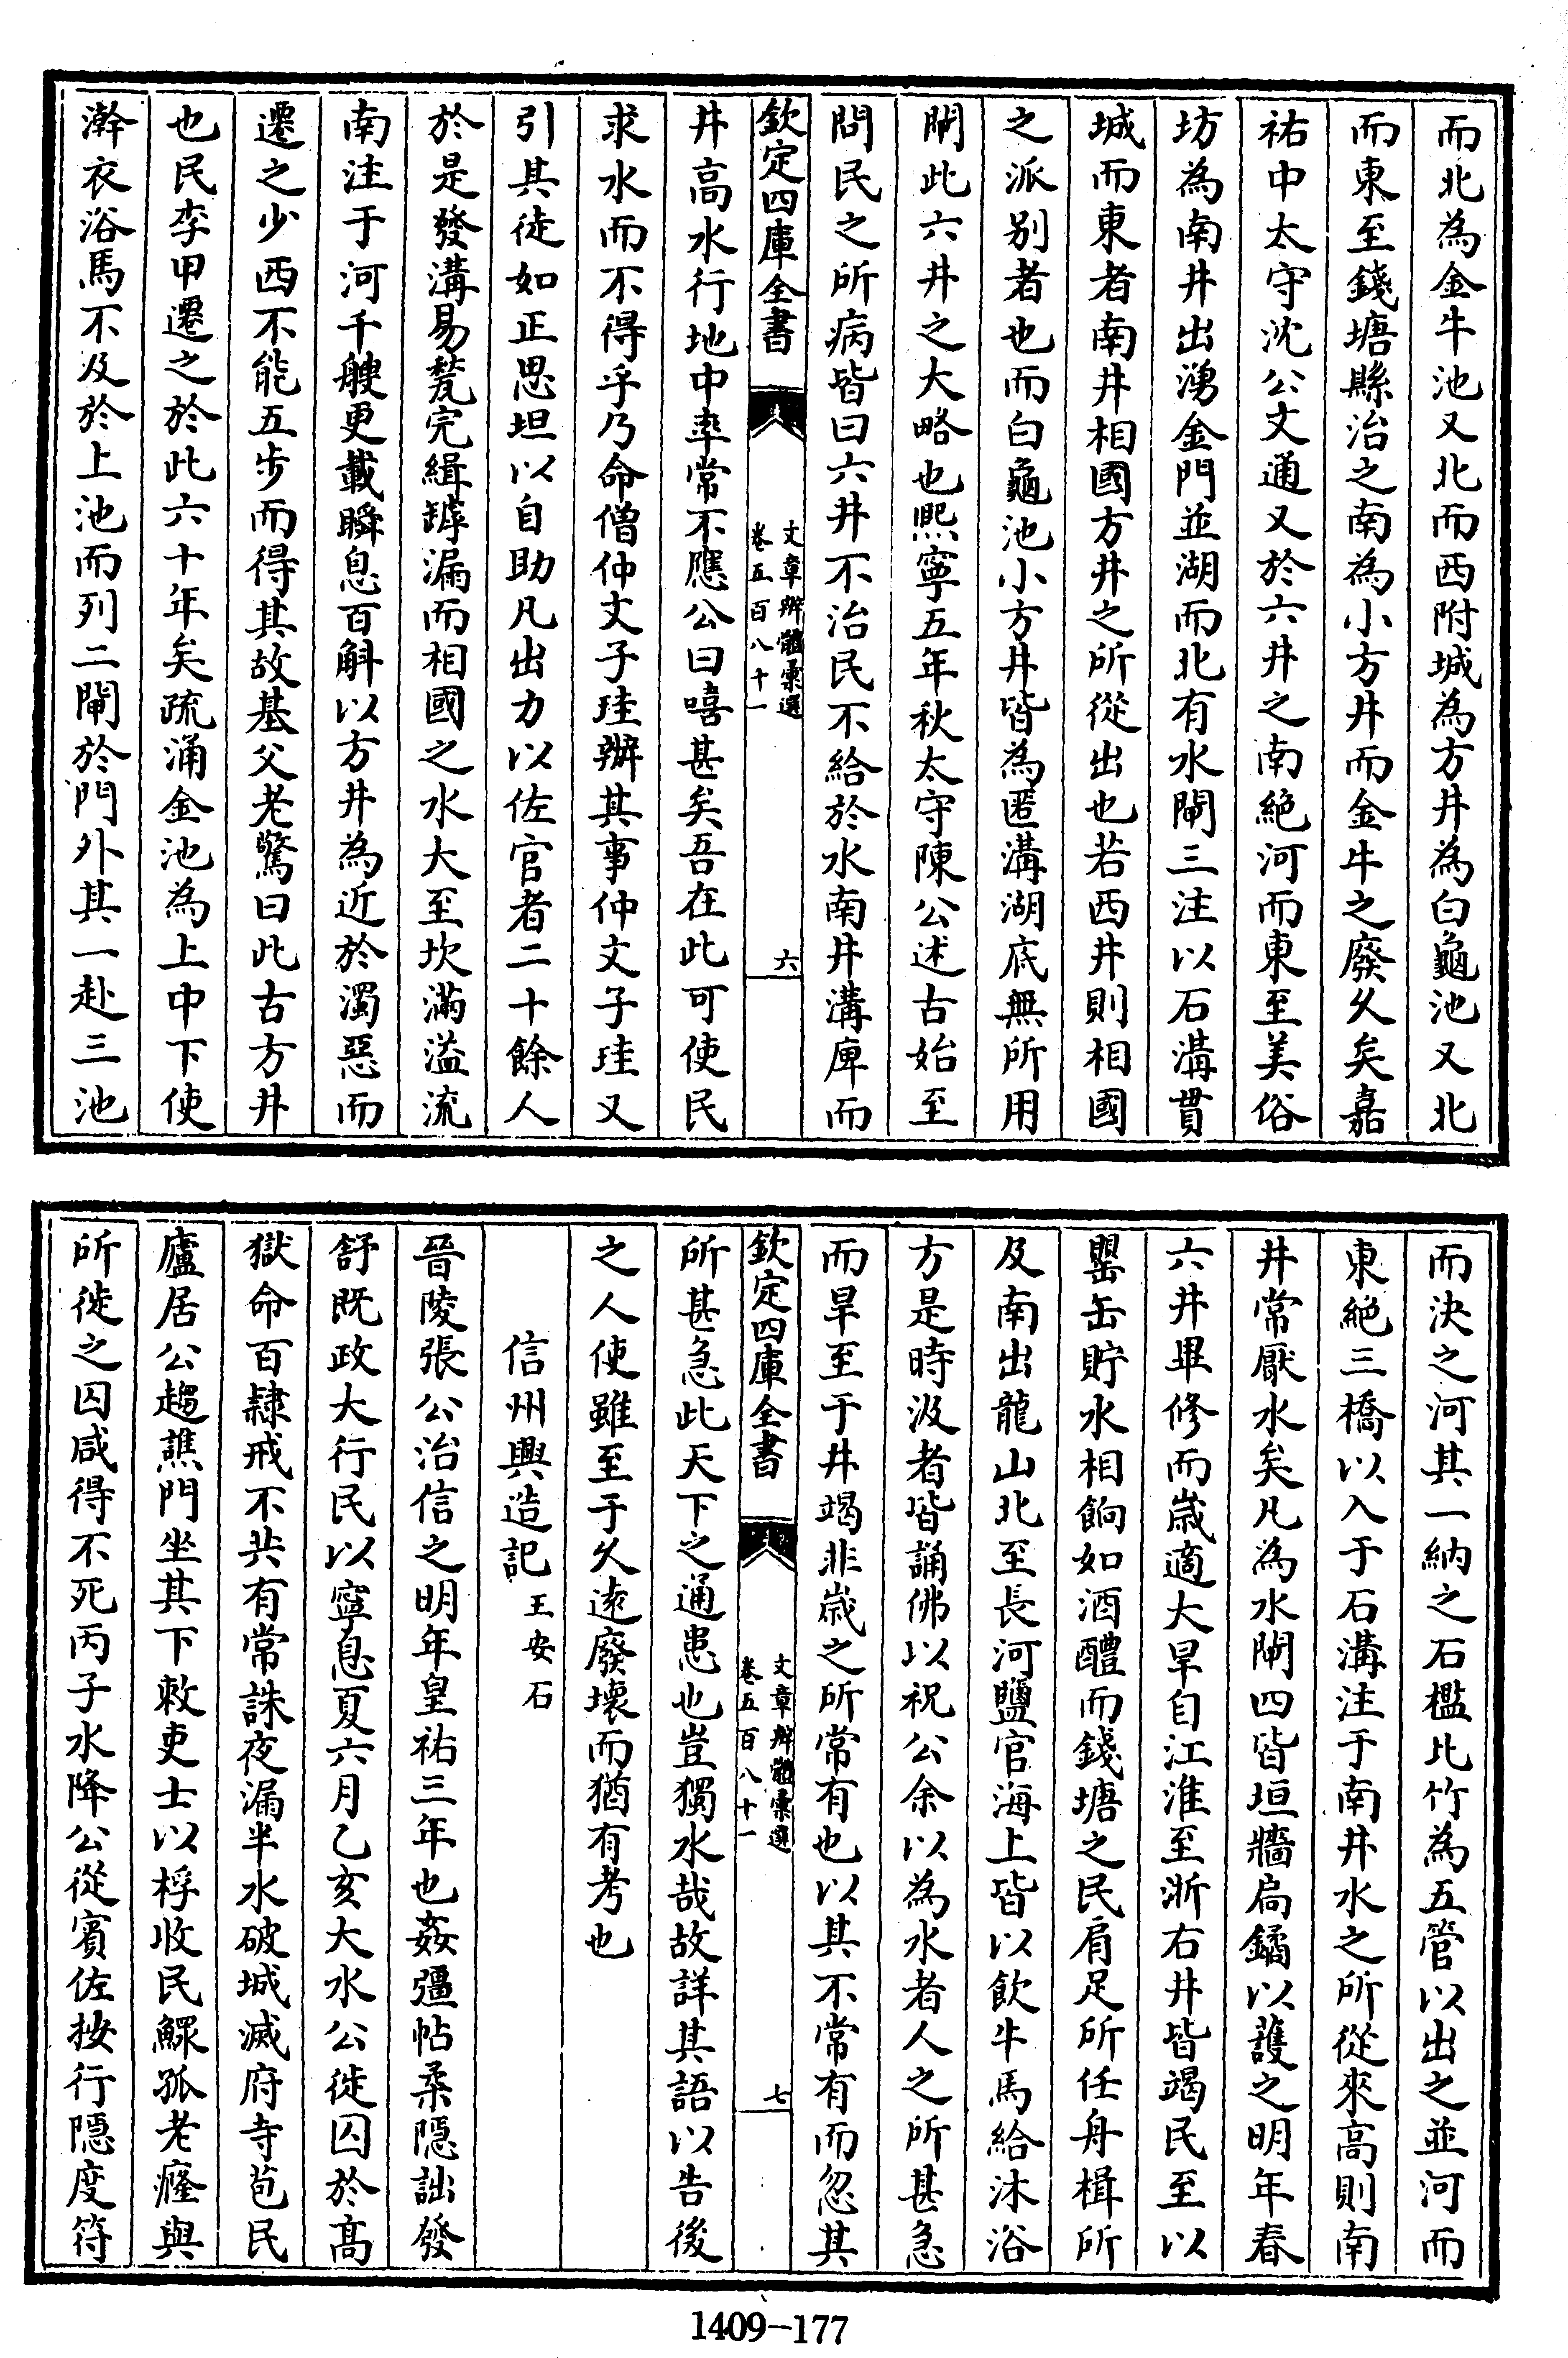 而北為金牛池又北而西附城為方井為白龜池又北
而東至錢塘縣治之南為小方井而金牛之廢久矣嘉
祐中太守沈公文通又於六井之南絶河而東至美俗
坊為南井出湧金門並湖而北有水閘三注以石溝貫
城而東者南井相國方井之所從出也若西井則相國
之派别者也而白龜池小方井皆為匿溝湖底無所用
閘此六井之大略也熙寧五年秋太守陳公述古始至
問民之所病皆曰六井不治民不給於水南井溝庳而
欽定四庫全書
文章辨體彙選
卷五百八十一
六
井高水行地中率常不應公曰嘻甚矣吾在此可使民
求水而不得乎乃命僧仲文子珪辦其事仲文子珪又
引其徒如正思坦以自助凡出力以佐官者二十餘人
於是發溝易甃完緝罅漏而相國之水大至坎滿溢流
南注于河千艘更載瞬息百斛以方井為近於濁惡而
遷之少西不能五步而得其故基父老驚曰此古方井
也民李甲遷之於此六十年矣疏涌金池為上中下使
澣衣浴馬不及於上池而列二閘於門外其一赴三池
而決之河其一納之石檻比竹為五管以出之並河而
東絶三橋以入于石溝注于南井水之所從來高則南
井常厭水矣凡為水閘四皆垣牆扃鐍以護之明年春
六井畢修而歲適大旱自江淮至浙右井皆竭民至以
罌缶貯水相餉如酒醴而錢塘之民肩足所任舟楫所
及南出龍山北至長河鹽官海上皆以飲牛馬給沐浴
方是時汲者皆誦佛以祝公余以為水者人之所甚急
而旱至于井竭非歲之所常有也以其不常有而忽其
欽定四庫全書
文章辨體彙選
卷五百八十一
七
所甚急此天下之通患也豈獨水哉故詳其語以告後
之人使雖至于久逺廢壞而猶有考也
信州興造記王安石
晉陵張公治信之明年皇祐三年也姦彊帖柔隱詘發
舒既政大行民以寧息夏六月乙亥大水公徙囚於髙
獄命百隸戒不共有常誅夜漏半水破城滅府寺苞民
廬居公趨譙門坐其下敕吏士以桴收民鰥孤老癃與
所徙之囚咸得不死丙子水降公從賓佐按行隠度符
1409-177